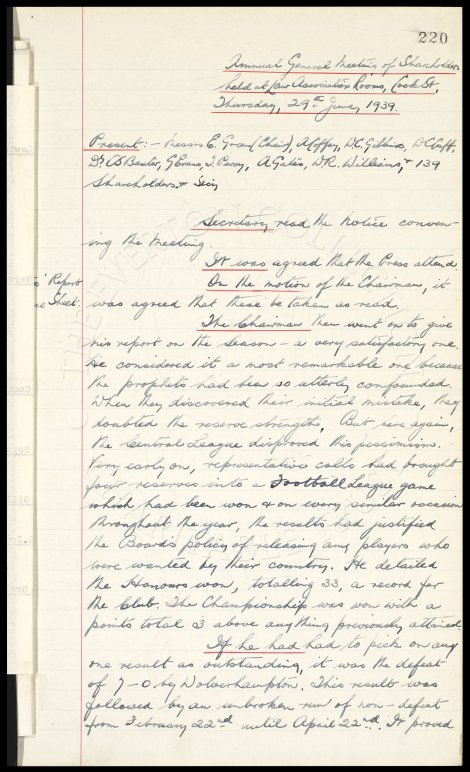 220
Annual General Meeting of Shareholders
held at Law Association Rooms, Cook St,
Thursday, 29th June, 1939.
Present:- Messrs E. Green (Chair), A Coffey, W.C. Gibbins, W C Cuff,
Dr C S Baxter, G Evans, J. Percy, A Gates, W.R. Williams, & 139
Shareholders & Secy
Secretary read the Notice conven-
ing the meeting.
It was agreed that the Press attend.
' Report
Sheet.
On the motion of the Chairman, it
was agreed that these be taken as read.
The Chairman then went on to give
his report on the season - a very satisfactory one.
He considered it a most remarkable one because
the prophets had been so utterly confounded.
When they discovered their initial mistake, they
doubted the reserve strengths, But here again,
the Central League disproved this pessimism.
Very early on, representative calls had brought
four reserves into a Football League game
which had been won & on every similar occasion
throughout the year, the results had justified
the Board's policy of releasing any players who
were wanted by their country. He detailed
the Honours won, totalling 33, a record for
the Club. The Championship was won with a
points total 3 above anything previously attained.
If he had had to pick on any
one result as outstanding, it was the defeat
of 7-0 by Wolverhampton. This result was
followed by an unbroken run of non-defeat
from February 22nd until April 22nd. It proved